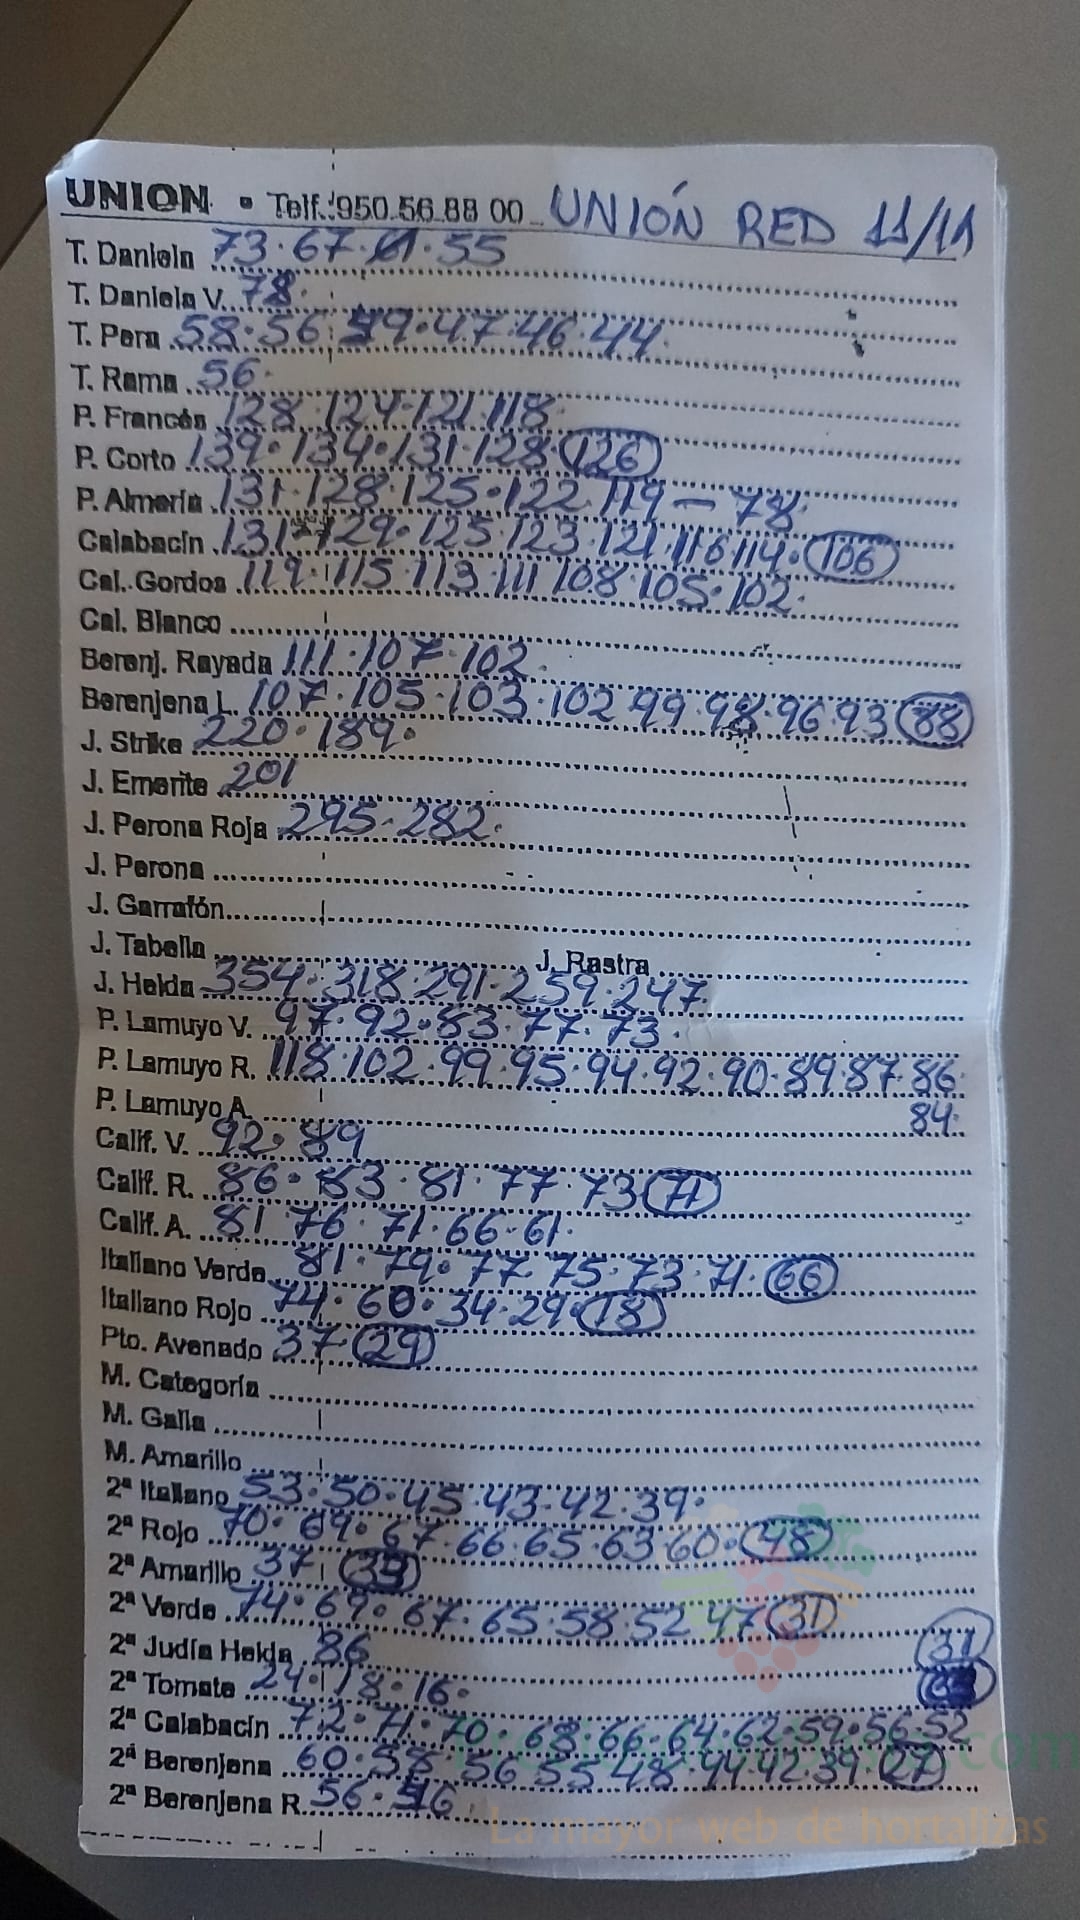 UNION • Telf.: 950 56 88 00 UNIÓN RED 11/11
T. Daniela 73·67·61·55
T. Daniela V. 78·
T. Pera 58·56·49·47·46·44·
T. Rama 56·
P. Francés 128·124·121·118·
P. Corto 139·134·131·128·126
P. Almería 131·128·125·122·119 – 78·
Calabacín 131·129·125·123·121·116·114·106
Cal. Gordos 119·115·113·111·108·105·102·
Cal. Blanco
Berenj. Rayada 111·107·102·
Berenjena L. 107·105·103·102·99·98·96·93·88
J. Strike 220·189·
J. Emerite 201
J. Perona Roja 295·282·
J. Perona
J. Garrafón
J. Tabella J. Rastra
J. Helda 354·318·291·259·247·
P. Lamuyo V. 97·92·83·77·73·
P. Lamuyo R. 118·102·99·95·94·92·90·89·87·86·
P. Lamuyo A. 84·
Calif. V. 92·89
Calif. R. 86·83·81·77·73·71
Calif. A. 81·76·71·66·61·
Italiano Verde 81·79·77·75·73·71·66
Italiano Rojo 74·60·34·29·18
Pto. Avenado 37·29
M. Categoría
M. Galia
M. Amarillo
2ª Italiano 53·50·45·43·42·39·
2ª Rojo 70·69·67·66·65·63·60·48
2ª Amarillo 37
2ª Verde 74·69·67·65·58·52·47·31
2ª Judía Helda 86 31
2ª Tomate 24·18·16·
2ª Calabacín 72·71·70·68·66·64·62·59·56·52
2ª Berenjena 60·58·56·55·48·44·42·39·27
2ª Berenjena R. 56·46·
La mayor web de hortalizas